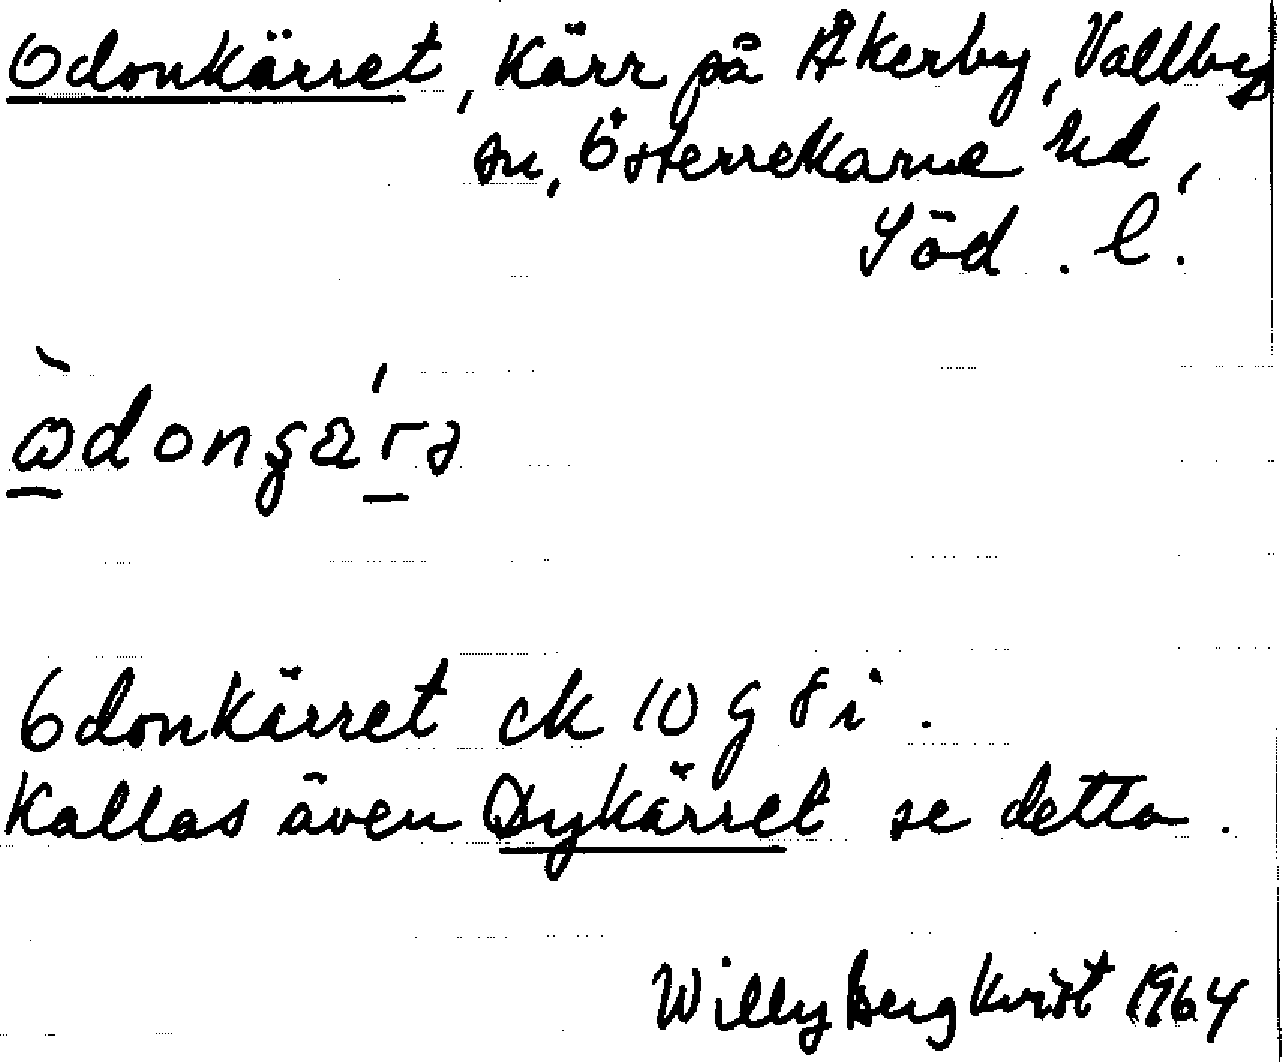 Odonkärret, Kärr på Åkerby, Vallby
sn, Österrekarne hd,
Söd. l.
Odonkärret ek 10 G 8 i.
Kallas även Dykärret se detta.
Willy Bergkvist 1964